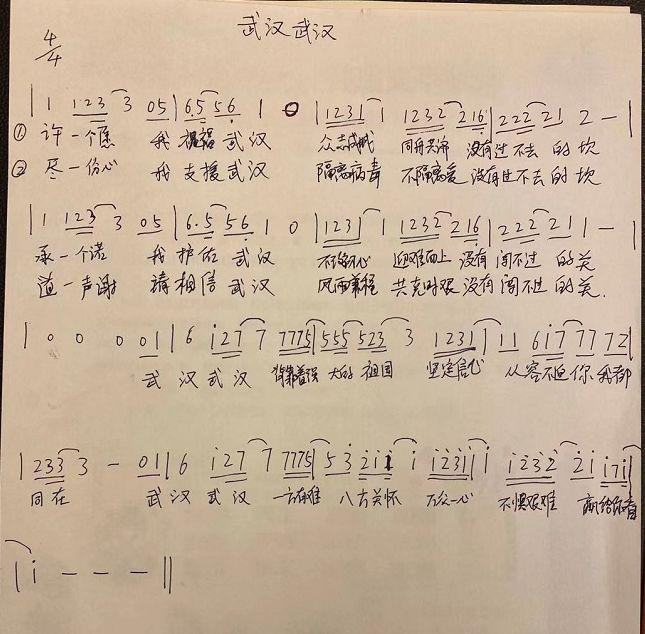 武汉武汉
4/4
| 1 123 3 05 | 6.5 56 1 0 | 1231 1 1232 216 | 222 21 2 — |
① 许一个愿 我祝福武汉 众志成城 同舟共济 没有过不去的坎
② 尽一份心 我支援武汉 隔离病毒 不隔离爱 没有过不去的坎
| 1 123 3 05 | 6.5 56 1 0 | 1231 1 1232 216 | 222 21 1 — |
承一个诺 我护佑武汉 不忘初心 迎难而上 没有闯不过的关
道一声谢 请相信武汉 风雨兼程 共克时艰 没有闯不过的关.
| 0 0 0 01 | 6 i27 7 7775 | 555 523 3 1231 | 11 6i7 77 72 |
武汉武汉 背靠着强大的祖国 坚定信心 从容不迫 你我都
| 233 3 — 01 | 6 i27 7 7775 | 5 3 2ii i ii231 | i i232 2i i7i |
同在 武汉武汉 一方有难 八方关怀 万众一心 不惧艰难 赢给你看
| i — — — ||